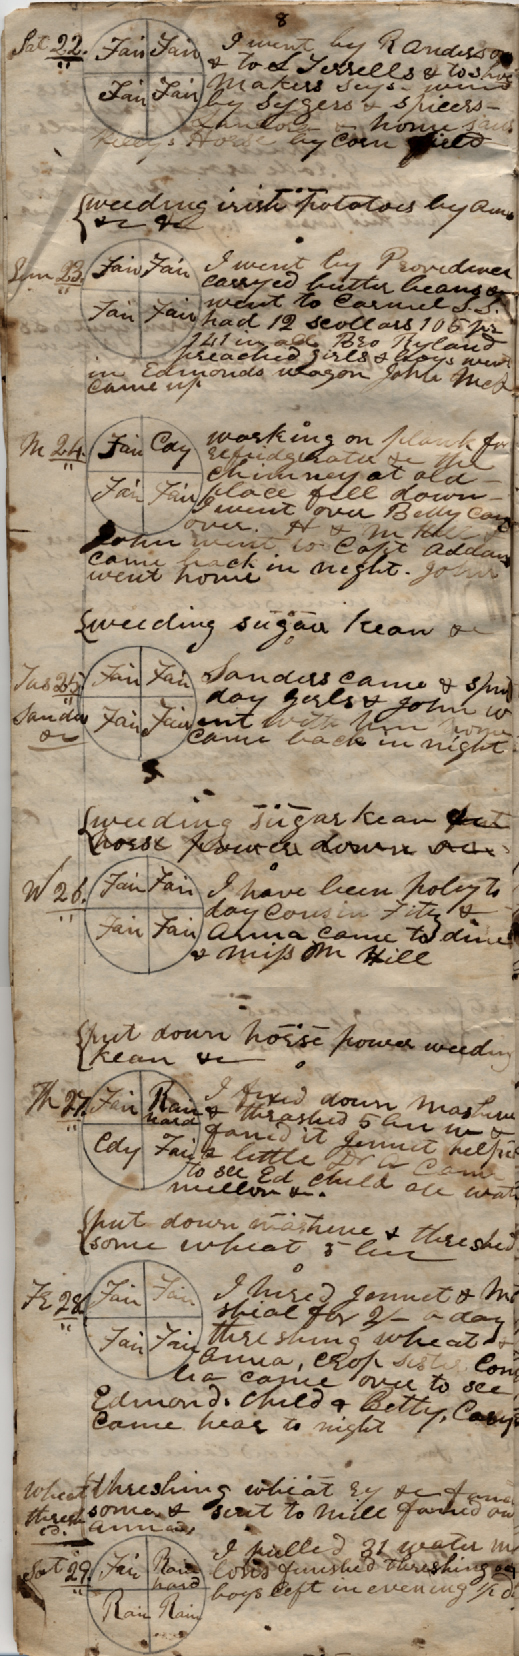 8
Sat 22. Fair Fair I went by R Anderson
& to L Terrells & to shoe
Fair Fair Makers seys- went
by Sygers & spicers-
& home
Horse by corn field
{weeding irish potatoes by
&c &c
Sun 23. Fair Fair I went by Providence
carryed butter beans &
Fair Fair went to Carmel S.S.
had 12 scollars 106
141 in all Bro Ryland
preached girls & boys went
in Edmonds wagon John McK
came up
M 24. Fair Cdy working on plank for
refridgerator &c the
Fair Fair chimney at old-
place fell down-
I went over Betty Cary
over. H & M
John went to Capt Addams
came back in night. John
went home
{weeding sugar kean &c
Tus 25 Fair Fair Sanders came & spent
Sanders day girls & John w
&c Fair Fair ent with him home
came back in night
{weeding sugar kean put
horse power down &c
W 26. Fair Fair I have been poly to
day Cousin Fitz &
Fair Fair Anna came to dine
& miss M Hill
{put down horse power weeding
kean &c
Th 27. Fair Rain hard I fixed down mashine
& thrashed 5 & w &
Cdy Fair faned it Jennet helped
a little Dr W Came
to see Ed child ate water
mellon &c.
{put down mashene & threshed
some wheat 5
Fr 28. Fair Fair I hired Jennet & M
shial for 2/- a day
Fair Fair threshing wheat &
Anna, crop sister Corn
lia came over to see
Edmond. child & Betty, Cary
came hear to night
Wheat threshing wheat Ry &c faned
thresh some & sent to mill faned
ed. annas
Sat 29. Fair Rain hard I pulled 31 water m
lons finished threshing
Rain Rain boys left in evening 1/2 d